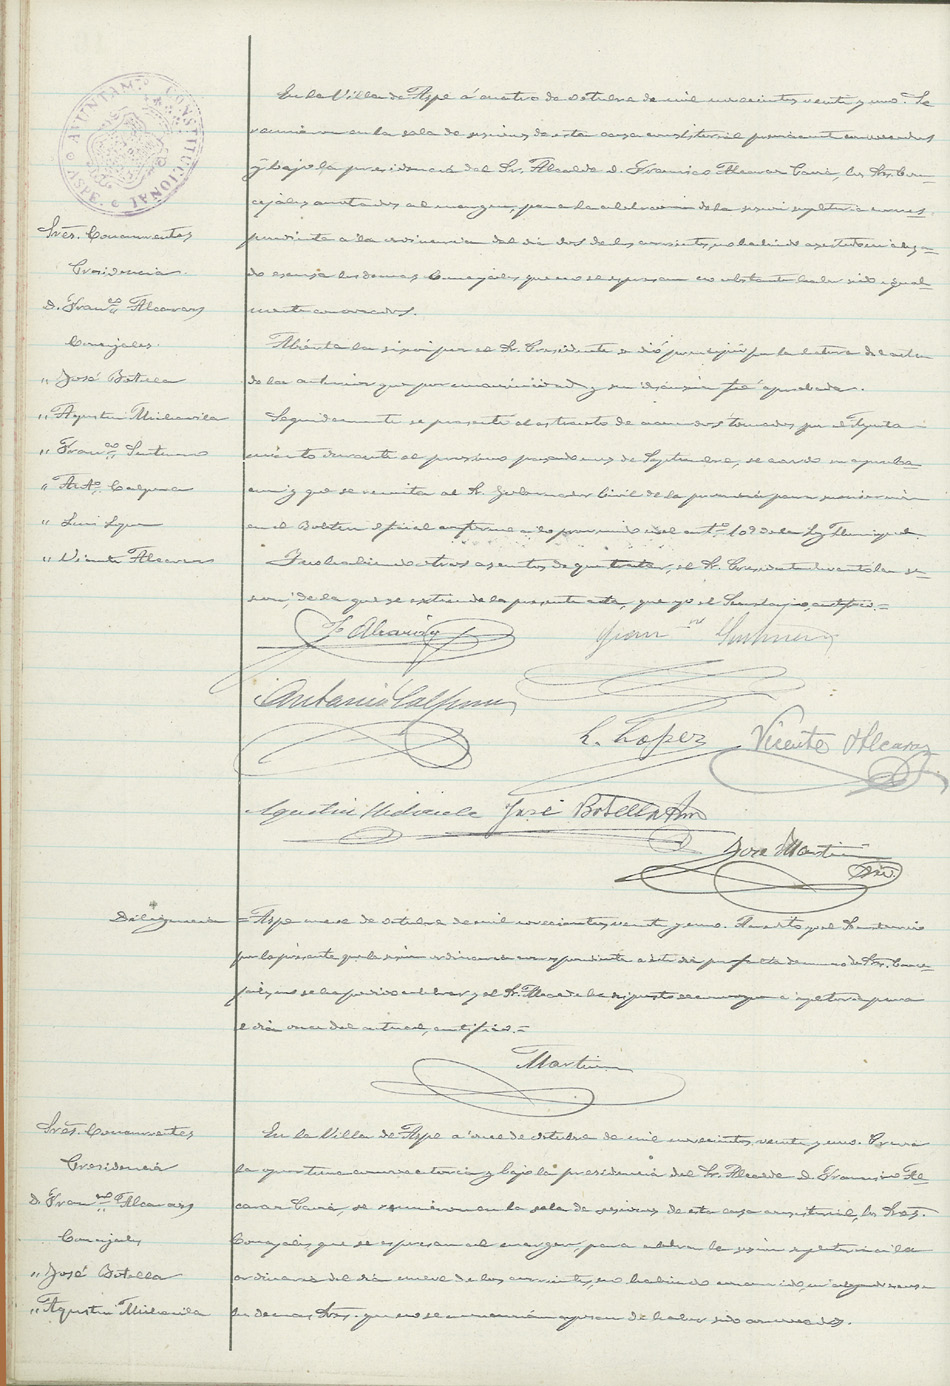 AYUNTAM.to CONSTITUCIONAL
ASPE
En la Villa de Aspe á cuatro de octubre de mil novecientos veinte y uno. Se
reunieron en la sala de sesiones de esta casa consistorial previamente convocados
y bajo la presidencia del Sr. Alcalde D. Francisco Alcaraz Carié, los Sres. Con-
cejales anotados al margen, para la celebracion de la sesion supletoria corres-
pondiente a la ordinaria del dia dos de los corrientes, no habiendo asistido ni alega-
do escusa los demas Concejales que no se expresan no obstante haber sido igual-
mente convocados.
Sres. Concurrentes
Presidencia
D. Franco Alcaraz
Concejales
" José Botella
" Agustin Miravila
" Franco
" Anto Calpena
" Luis Lopez
" Vicente Alcaraz
Abierta la sesion por el Sr. Presidente se dió principio por la lectura del acta
de la anterior que por unanimidad y sin discusion fué aprobada.
Seguidamente se presentó el extracto de acuerdos tomados por el Ayunta-
miento durante el proximo pasado mes de Septiembre, se acordo su aproba-
cion y que se remita al Sr. Gobernador Civil de la provincia para su insercion
en el Boletin Oficial conforme a lo prevenido en el art.o 109 de la Ley Municipal.
Y no habiendo otros asuntos de que tratar, el Sr. Presidente levantó la se-
sion, de la que se extiende la presente acta, que yo el Secretario, certifico.=
F. Alcaraz
Antonio Calpena
L. Lopez Vicente Alcaraz
Agustin Miravila José Botella
Jose Martin
Srio.
Diligencia = Aspe nueve de octubre de mil novecientos veinte y uno. Acredito yo el Secretario
por la presente que la sesion ordinaria correspondiente a este dia por falta de numero de Sres. Conce-
jales no se ha podido celebrar y el Sr. Alcalde ha dispuesto se convoque a supletoria para
el dia once del actual, certifico.=
Martin
Sres. Concurrentes
Presidencia
D. Franco Alcaraz
Concejales
" José Botella
" Agustin Miravila
En la Villa de Aspe a once de octubre de mil novecientos veinte y uno. Previa
la oportuna convocatoria y bajo la presidencia del Sr. Alcalde D. Francisco Al-
caraz Carié, se reunieron en la sala de sesiones de esta casa consistorial, los Sres.
Concejales que se expresan al margen, para celebrar la sesion supletoria a la
ordinaria del dia nueve de los corrientes, no habiendo concurrido, ni alegado escusa
los demas Sres. que no se mencionan apesar de haber sido convocados.